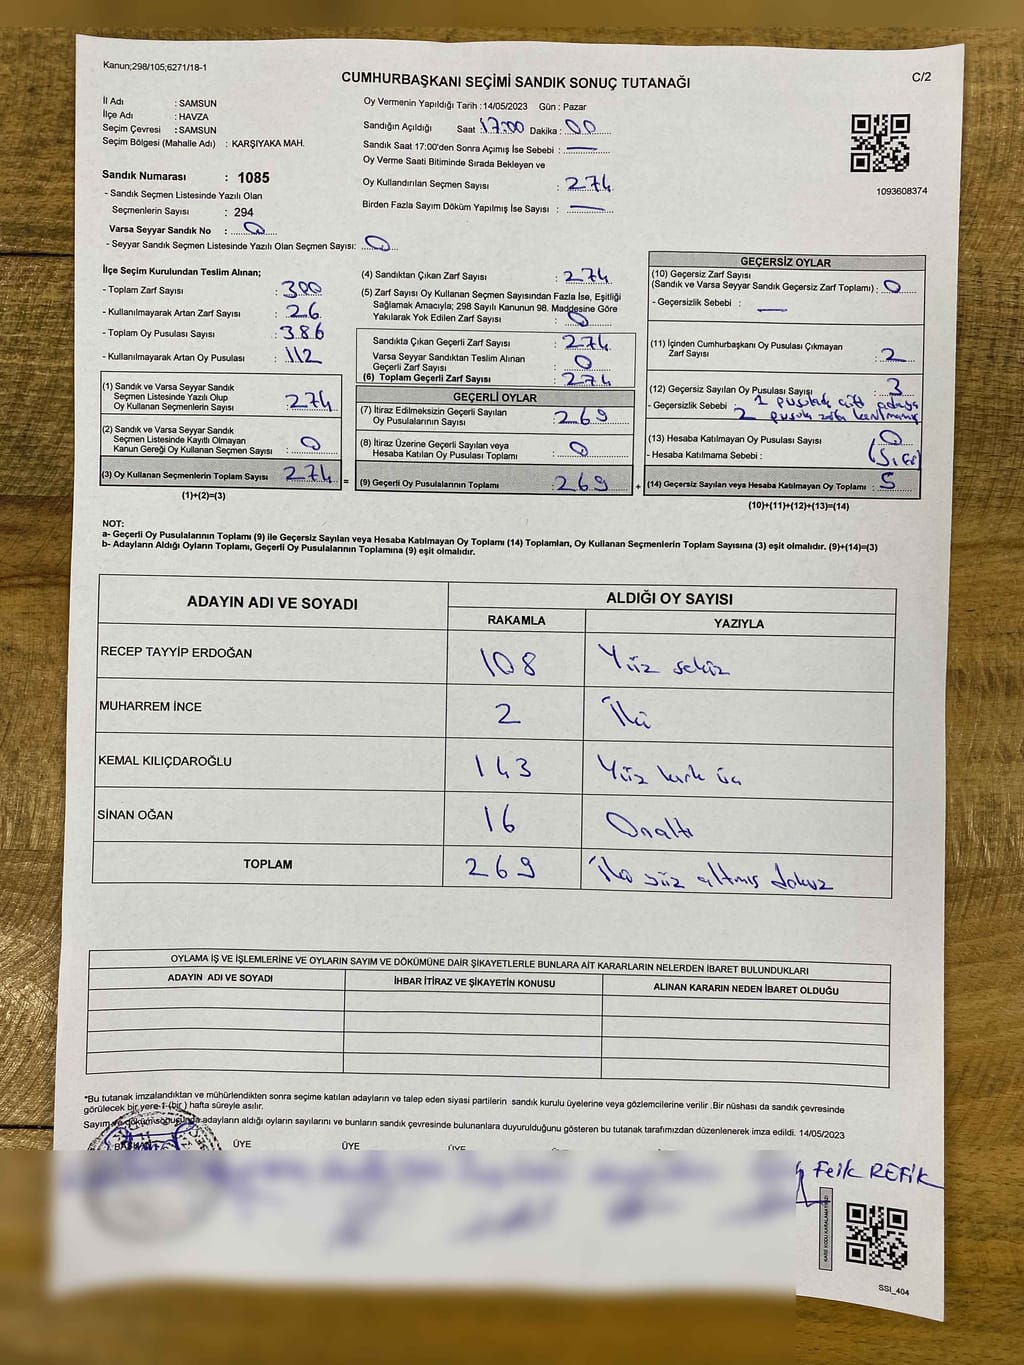 Kanun;298/105;6271/18-1
C/2
CUMHURBAŞKANI SEÇİMİ SANDIK SONUÇ TUTANAĞI
İl Adı : SAMSUN
İlçe Adı : HAVZA
Seçim Çevresi : SAMSUN
Seçim Bölgesi (Mahalle Adı) : KARŞIYAKA MAH.
Sandık Numarası : 1085
- Sandık Seçmen Listesinde Yazılı Olan
Seçmenlerin Sayısı : 294
Varsa Seyyar Sandık No : 0
- Seyyar Sandık Seçmen Listesinde Yazılı Olan Seçmen Sayısı: 0
Oy Vermenin Yapıldığı Tarih :14/05/2023 Gün : Pazar
Sandığın Açıldığı Saat 17:00 Dakika : 00
Sandık Saat 17:00'den Sonra Açımış İse Sebebi : —
Oy Verme Saati Bitiminde Sırada Bekleyen ve
Oy Kullandırılan Seçmen Sayısı : 274
Birden Fazla Sayım Döküm Yapılmış İse Sayısı : —
1093608374
İlçe Seçim Kurulundan Teslim Alınan;
- Toplam Zarf Sayısı : 300
- Kullanılmayarak Artan Zarf Sayısı : 26
- Toplam Oy Pusulası Sayısı : 386
- Kullanılmayarak Artan Oy Pusulası : 112
(1) Sandık ve Varsa Seyyar Sandık
Seçmen Listesinde Yazılı Olup
Oy Kullanan Seçmenlerin Sayısı : 274
(2) Sandık ve Varsa Seyyar Sandık
Seçmen Listesinde Kayıtlı Olmayan
Kanun Gereği Oy Kullanan Seçmen Sayısı : 0
(3) Oy Kullanan Seçmenlerin Toplam Sayısı : 274 =
(1)+(2)=(3)
(4) Sandıktan Çıkan Zarf Sayısı : 274
(5) Zarf Sayısı Oy Kullanan Seçmen Sayısından Fazla İse, Eşitliği
Sağlamak Amacıyla; 298 Sayılı Kanunun 98. Maddesine Göre
Yakılarak Yok Edilen Zarf Sayısı : 0
Sandıkta Çıkan Geçerli Zarf Sayısı : 274
Varsa Seyyar Sandıktan Teslim Alınan
Geçerli Zarf Sayısı : 0
(6) Toplam Geçerli Zarf Sayısı : 274
GEÇERLİ OYLAR
(7) İtiraz Edilmeksizin Geçerli Sayılan
Oy Pusulalarının Sayısı : 269
(8) İtiraz Üzerine Geçerli Sayılan veya
Hesaba Katılan Oy Pusulası Toplamı : 0
(9) Geçerli Oy Pusulalarının Toplamı : 269 +
GEÇERSİZ OYLAR
(10) Geçersiz Zarf Sayısı
(Sandık ve Varsa Seyyar Sandık Geçersiz Zarf Toplamı) : 0
- Geçersizlik Sebebi : —
(11) İçinden Cumhurbaşkanı Oy Pusulası Çıkmayan
Zarf Sayısı : 2
(12) Geçersiz Sayılan Oy Pusulası Sayısı : 3
- Geçersizlik Sebebi 1 pusulada çift
2
(13) Hesaba Katılmayan Oy Pusulası Sayısı 0
- Hesaba Katılmama Sebebi :
(14) Geçersiz Sayılan veya Hesaba Katılmayan Oy Toplamı : 5
(10)+(11)+(12)+(13)=(14)
NOT:
a- Geçerli Oy Pusulalarının Toplamı (9) ile Geçersiz Sayılan veya Hesaba Katılmayan Oy Toplamı (14) Toplamları, Oy Kullanan Seçmenlerin Toplam Sayısına (3) eşit olmalıdır. (9)+(14)=(3)
b- Adayların Aldığı Oyların Toplamı, Geçerli Oy Pusulalarının Toplamına (9) eşit olmalıdır.
ADAYIN ADI VE SOYADI ALDIĞI OY SAYISI
RAKAMLA YAZIYLA
RECEP TAYYİP ERDOĞAN 108 Yüz sekiz
MUHARREM İNCE 2 İki
KEMAL KILIÇDAROĞLU 143 Yüz kırk üç
SİNAN OĞAN 16 Onaltı
TOPLAM 269 İki yüz altmış dokuz
OYLAMA İŞ VE İŞLEMLERİNE VE OYLARIN SAYIM VE DÖKÜMÜNE DAİR ŞİKAYETLERLE BUNLARA AİT KARARLARIN NELERDEN İBARET BULUNDUKLARI
ADAYIN ADI VE SOYADI İHBAR İTİRAZ VE ŞİKAYETİN KONUSU ALINAN KARARIN NEDEN İBARET OLDUĞU
*Bu tutanak imzalandıktan ve mühürlendikten sonra seçime katılan adayların ve talep eden siyasi partilerin sandık kurulu üyelerine veya gözlemcilerine verilir .Bir nüshası da sandık çevresinde
görülecek bir yere 1 (bir ) hafta süreyle asılır.
Sayım ve döküm sonucunda adayların aldığı oyların sayılarını ve bunların sandık çevresinde bulunanlara duyurulduğunu gösteren bu tutanak tarafımızdan düzenlenerek imza edildi. 14/05/2023
BAŞKAN ÜYE ÜYE ÜYE
Feik REFİK
SSI_404